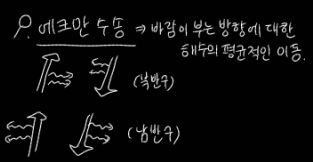 에크만 수송 ⇒ 바람이 부는 방향에 대한
해수의 평균적인 이동.
(북반구)
(남반구)